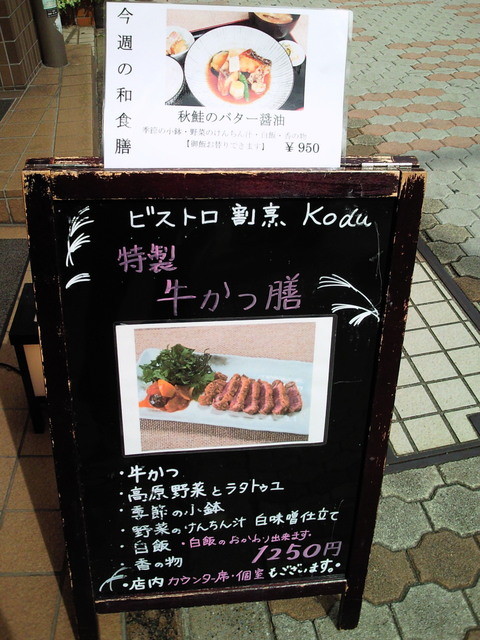 今週の和食膳
秋鮭のバター醤油
季節の小鉢・野菜のけんちん汁・白飯・香の物
【御飯お替りできます】
¥950
ビストロ 割烹 Kodu
特製
牛かつ膳
・牛かつ
・高原野菜とラタトゥユ
・季節の小鉢
・野菜のけんちん汁 白味噌仕立て
・白飯・白飯のおかわり出来ます。
・香の物 1250円
・店内カウンター席・個室もございます。